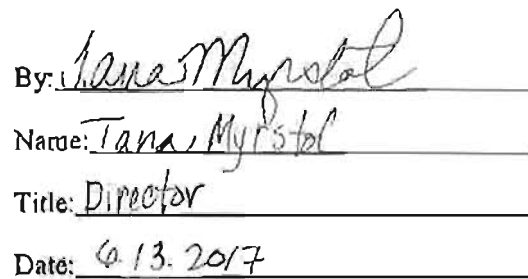 By: Tana Myrstol
Name: Tana Myrstol
Title: Director
Date: 6.13.2017